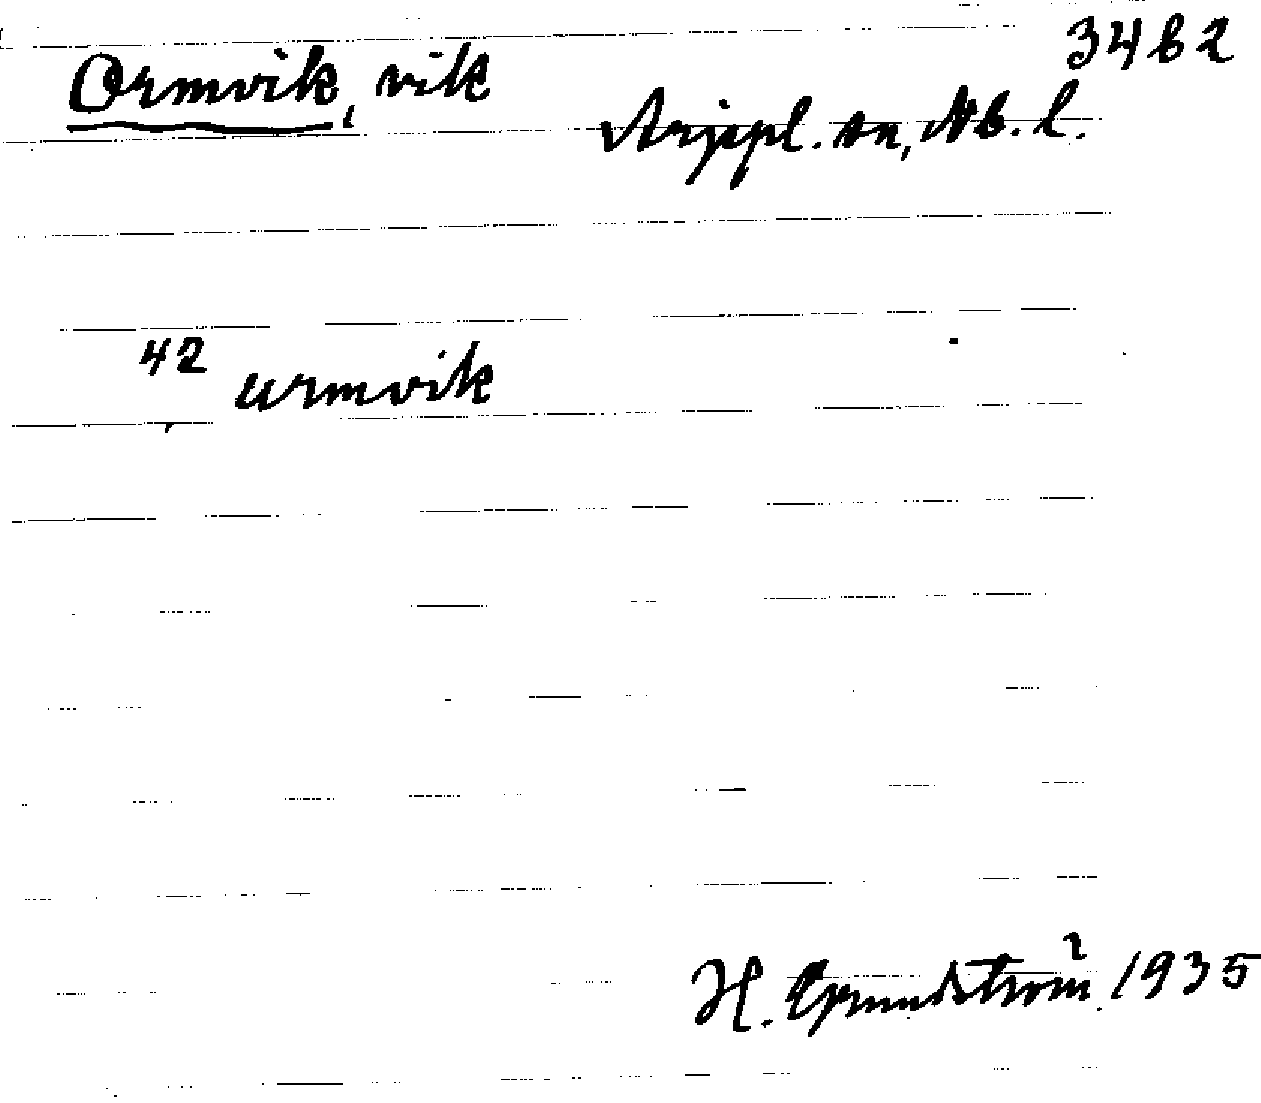 3462
Ormvik, vik
Arjepl. sn, Nb. l.
42 urmvik
H. Grundström 1935